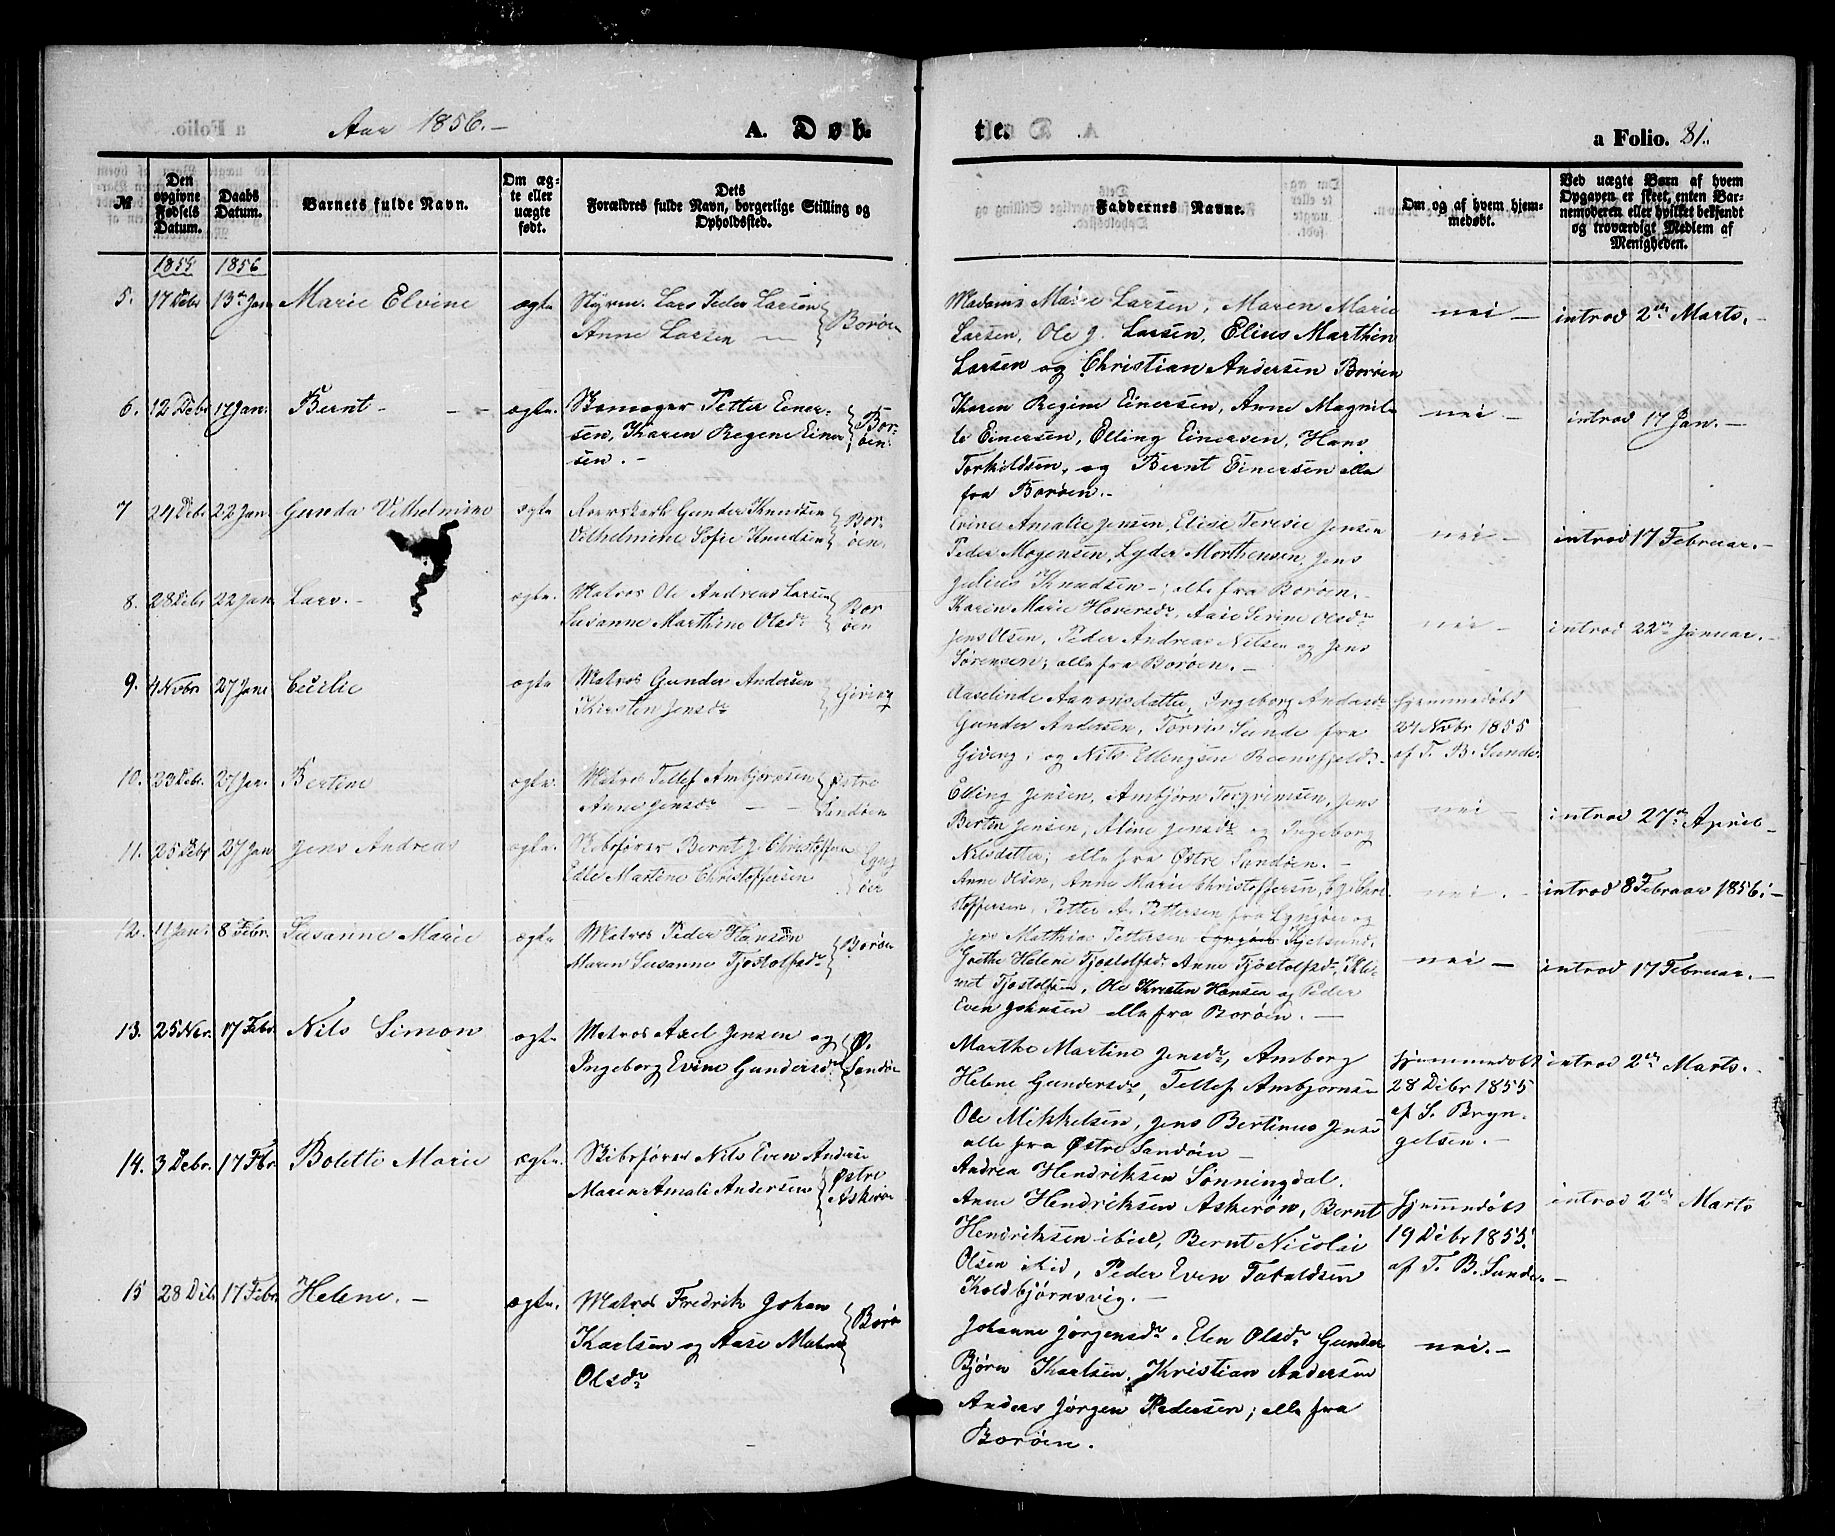 Aar 1856.-
A. Døb-
te.
a Folio. 81.
№
Den opgivne Fødsels Datum.
Daabs Datum.
Barnets fulde Navn.
Om ægte eller uægte født.
Dets Forældres fulde Navn, borgerlige Stilling og Opholdssted.
Faddernes Navne.
Om og af hvem hjemmedøbt.
Ved uægte Børn af hvem Opgaven er skeet, enten Barnemoderen eller hvilket bekjendt og troværdigt Medlem af Menigheden.
1855 1856
5. 17 Debr 13de Jan Marie Elvine ægte
Styrm. Lars Peder Larsen
Anne Larsen Borøen
Madame Marie Larsen, Maren Marie
Larsen, Ole J. Larsen, Elius Marthin
Larsen og Christian Andersen Borøen
nei - introd 2den Marts.-
6. 12 Debr 17 Jan. Bernt - ægte.
Petter Einer-
sen, Karen Regene Einer
sen. - Bor-
øen
Karen Regine Einersen, Anne Magrete
Einersen, Elling Einersen, Hans
Torkildsen, og Bernt Einersen alle
fra Borøen.-
nei - introd 17 Jan. -
7 24 Debr 22 Jan. Gunda Vilhelmine ægte
Gunder Knudsen
Vilhelmine Sofie Knudsen Bor-
øen.
Evine Amalie Jensen, Elise Teresie Jensen
Peder Mogensen, Lyder Morthensen, Jens
Julius Knudsen -; alle fra Borøen.-
nei - introd 17 Februar. -
8. 28 Debr 22 Jan Lars. - ægte.
Matros Ole Andreas Larsen
Susanne Marthine Olsdr Bor
øen
Karen Marie Haversdr, Aase Serine Olsdr
Jens Olsen, Peder Andreas Nilsen og Jens
Sørensen; alle fra Borøen. -
nei - introd 22de Januar. -
9. 4 Novbr 27 Jan Cecilie ægte
Matros Gunder Andersen
Kirsten Jensdr Giving
Aaselinde Aanonsdatter, Ingeborg Andersdr
Gunder Andersen, Torris Sunde fra
Giveng; og Nils Ellingsen
Hjemmedøbt
24 Novbr 1855
af T. B. Sunde.
10. 23 Debr. 27 Jan. Bertine ægte.
Matros Tellef Ambjørnsen
Anne Jensdr - - Østre
Sandøen
Elling Jensen, Ambjørn Torgrimsen, Jens
Bertin Jensen, Aline Jensdr og Ingeborg
Nilsdetter; alle fra Østre Sandøen. -
nei - introd 27de April -
11. 25 Debr 27 Jan Jens Andreas ægte.
Skibsfører Bernt J. Christoffersen
Edle Martine Christoffersen Lyng
øer
Anne Olsen, Anne Marie Christoffersen, Chri
stoffersen, Petter A. Pettersen fra Lyngøer og
Jens Matthias Pettersen Kjelsund.
nei. introd 8 Februar 1856. -
12. 11 Jan. 8 Febr. Susanne Marie ægte.
Matros Peder Hansen
Maren Susanne Tjostolfsdr Borøen
Grethe Helene Tjostolfsdr, Anne Tjostolfsdr, Kle-
met Tjostolfsen, Ole Kristen Hansen og Peder
Even Johnsen alle fra Borøen. -
nei - introd 17 Februar. -
13. 25 Nov. 17 Febr. Nils Simon ægte.
Matros Axel Jensen og
Ingeborg Evine Gundersdr Ø.
Sandøe
Marthe Martine Jensdr, Amborg
Helene Gundersdr, Tellef Ambjørnsen
Ole Mikkelsen, Jens Bertinus Jensen
alle fra Østre Sandøen -
Hjemmedøbt
28 Debr 1855
af S. Bryn-
gelsen. -
introd 2den Marts. -
14. 3 Debr. 17 Fbr. Bolette Marie ægte.
Skibsfører Nils Even Anderse
Maren Amalie Andersen Østre
Askerøen
Andrea Hendriksen Sønningdal.
Anne Hendriksen Askerøen, Bernt
Hendriksen ibid, Bernt Nicolai
Olsen ibid, Peder Even
Koldbjørnsvig. -
Hjemmedøbt
19 Debr 1855.
af T. B. Sunde. -
introd 2den Marts
15 28 Debr 17 Febr. Helene. - ægte.
Matros Fredrik Johan
Karlsen og Aase Malene
Olsdr Borøe
Johanne Jørgensdr. Elen Olsdr Gunder
Bjørn Karlsen, Kristian Andersen
Anders Jørgen Pedersen; alle fra
Borøen.
nei. -